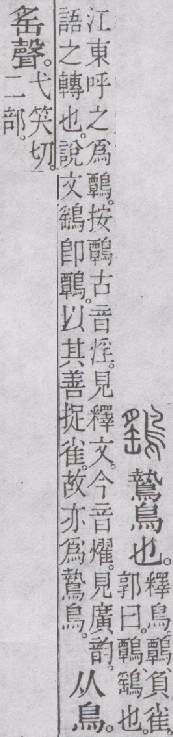 鷂 鷙鳥也。釋鳥。鷣、負雀。
郭曰。鷣、鷂也。
江東呼之爲鷣。按鷣古音淫。見釋文。今音燿。見廣韵。
語之轉也。說文鷂卽鷣。以其善捉雀。故亦爲鷙鳥。
从鳥。
䍃聲。弋笑切。
二部。